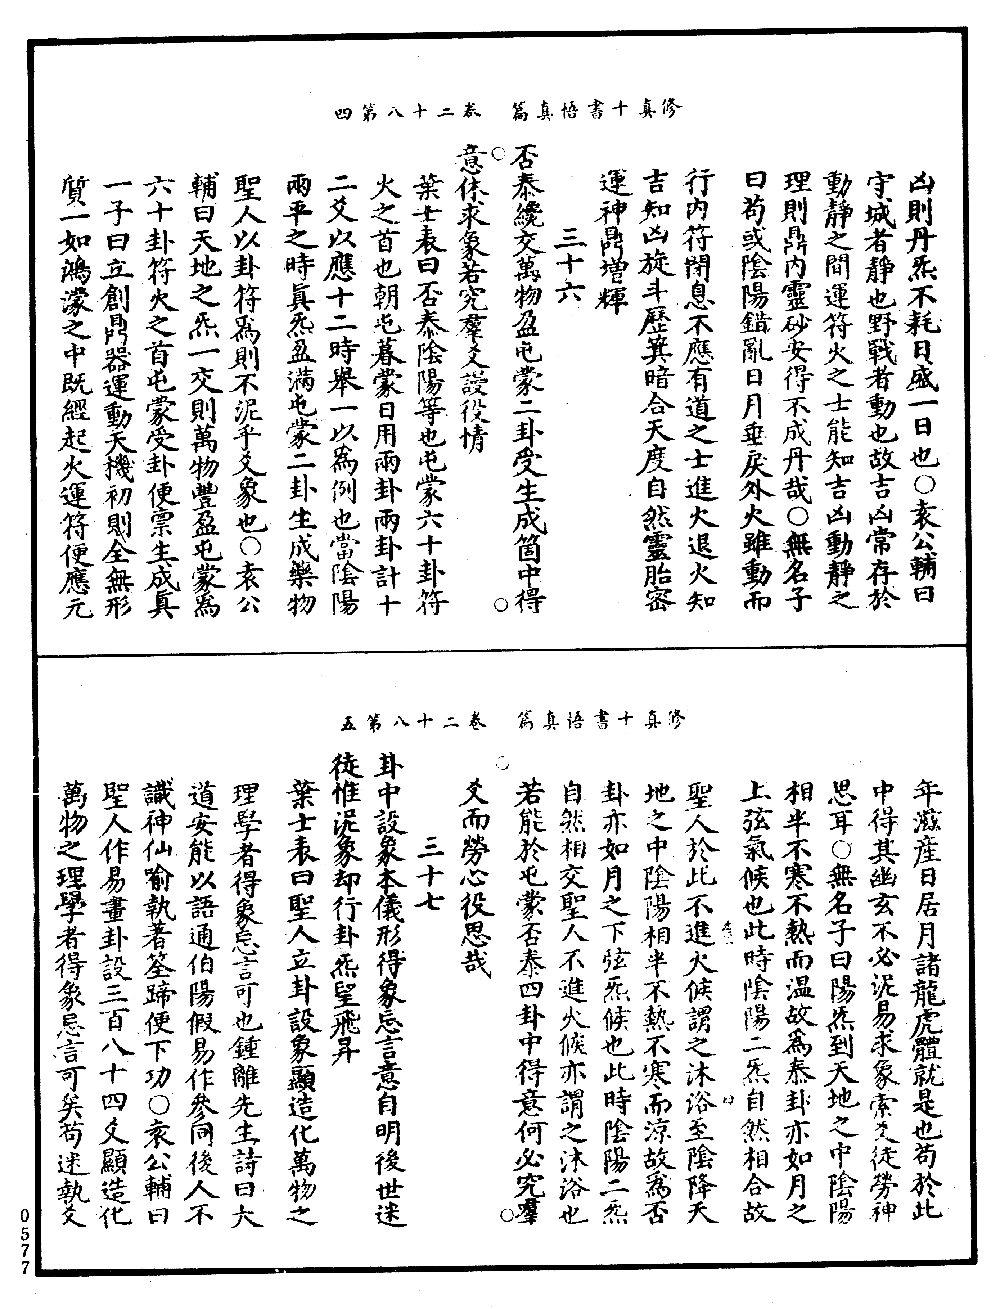 修真十書悟真篇　卷二十八第四
凶則丹炁不耗日盛一日也○袁公輔曰
守城者靜也野戰者動也故吉凶常存於
動靜之間運符火之士能知吉凶動靜之
理則鼎內靈砂安得不成丹哉○無名子
曰苟或陰陽錯亂日月乖戾外火雖動而
行內符閉息不應有道之士進火退火知
吉知凶旋斗歷箕暗合天度自然靈胎密
運神鼎增輝
三十六
否泰纔交萬物盈屯蒙二卦受生成箇中得
意休求象若究羣爻謾役情
葉士表曰否泰陰陽等也屯蒙六十卦符
火之首也朝屯暮蒙日用兩卦兩卦計十
二爻以應十二時舉一以為例也當陰陽
兩平之時真炁盈滿屯蒙二卦生成藥物
聖人以卦符為則不泥乎爻象也○袁公
輔曰天地之炁一交則萬物豐盈屯蒙為
六十卦符火之首屯蒙受卦便禀生成真
一子曰立創鼎器運動天機初則全無形
質一如鴻濛之中既經起火運符便應元
修真十書悟真篇　卷二十八第五
年滋產日居月諸龍虎體就是也苟於此
中得其幽玄不必泥易求象索爻徒勞神
思耳○無名子曰陽炁到天地之中陰陽
相半不寒不熱而溫故為泰卦亦如月之
上弦氣候也此時陰陽二炁自然相合故
聖人於此不進火候謂之沐浴至陰降天
地之中陰陽相半不熱不寒而涼故為否
卦亦如月之下弦炁候也此時陰陽二炁
自然相交聖人不進火候亦謂之沐浴也
若能於屯蒙否泰四卦中得意何必究羣
爻而勞心役思哉
三十七
卦中設象本儀形得象忘言意自明後世迷
徒惟泥象却行卦炁望飛昇
葉士表曰聖人立卦設象顯造化萬物之
理學者得象忘言可也鍾離先生詩曰大
道安能以語通伯陽假易作參同後人不
識神仙喻執著筌蹄便下功○袁公輔曰
聖人作易畫卦設三百八十四爻顯造化
萬物之理學者得象忘言可矣苟迷執爻
0577